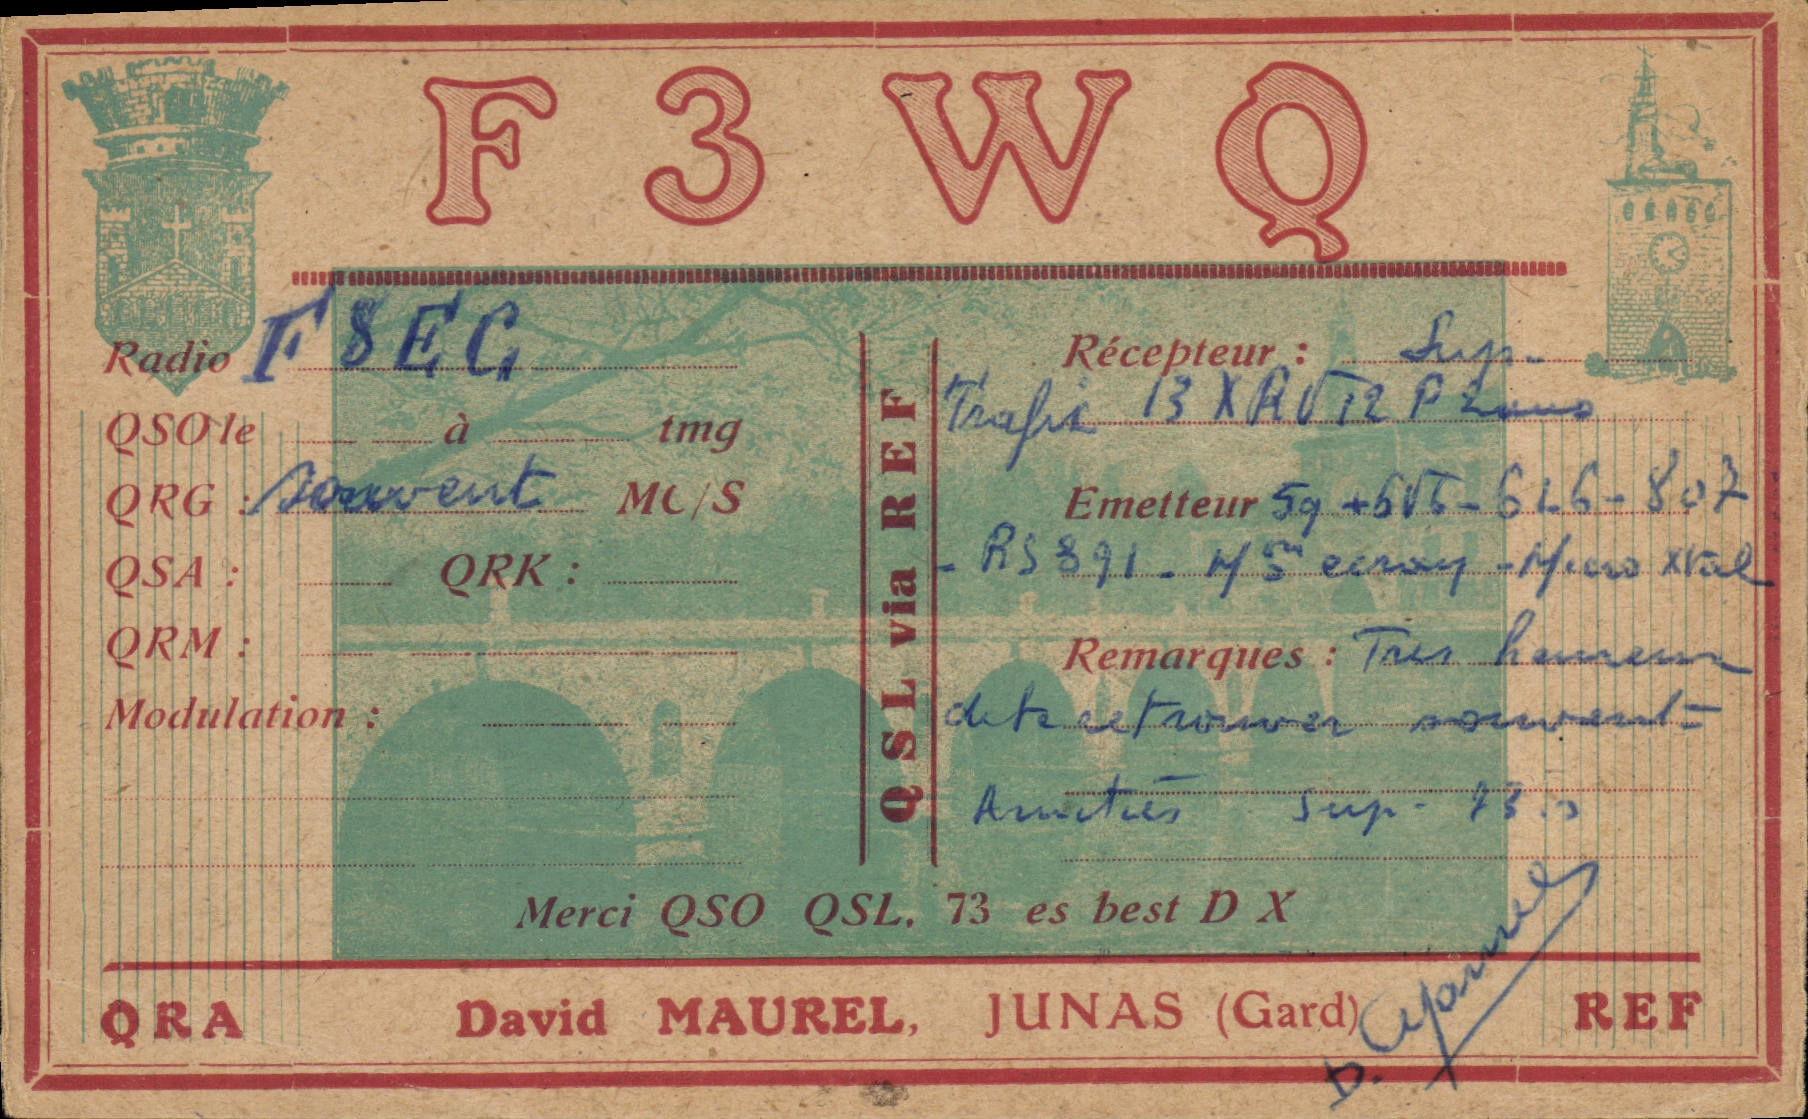 F 3 W Q
Radio F8EG
QSO le à tmg
QRG : souvent MC/S
QSA : QRK :
QRM :
Modulation :
QSL via REF
Récepteur : Sup.
Trafic 13 X R
Emetteur 59 + 6V6 - 6L6 - 807
- RS 391 - écran - Micro Xtal
Remarques : Tres heureux
de te retrouver souvent -
Amitiés Sup. 73.
Merci QSO QSL. 73 es best D X
QRA David MAUREL, JUNAS (Gard) REF